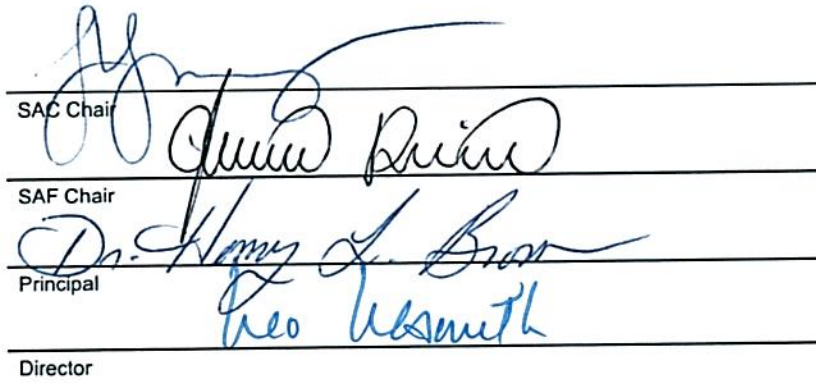 SAC Chair
SAF Chair
Dr. Henry L. Brown
Principal
Leo Nesmith
Director